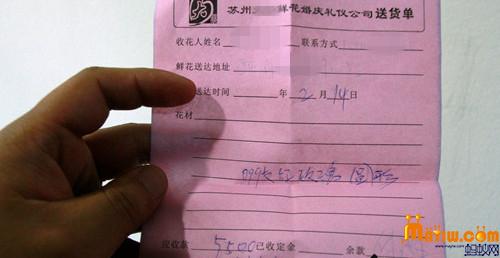 苏州 鲜花婚庆礼仪公司送货单
收花人姓名 联系方式
鲜花送达地址
送达时间 年 2 月 14 日
花材
999朵红玫瑰 圆形
应收款 5500 已收定金 余款
mayiw.com
www.mayiw.com 蚂蚁网